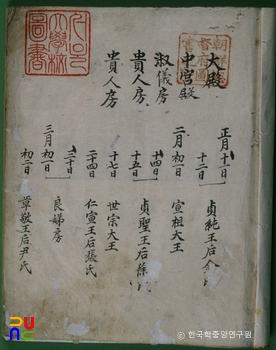 大殿
中宮殿
淑儀房
貴人房
貴人房
正月
十二日
貞純王后金氏
二月初一日
宣祖大王
十四日
十五日
貞聖王后徐氏
十七日
世宗大王
二十四日
仁宣王后張氏
三十日
三月初一日
良娣房
初二日
章敬王后尹氏
大學校
圖書
한국학중앙연구원